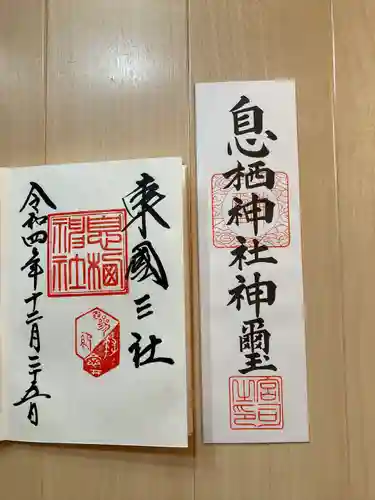 息栖神社神璽
宮司之印
東國三社
息栖神社
令和四年十二月二十五日